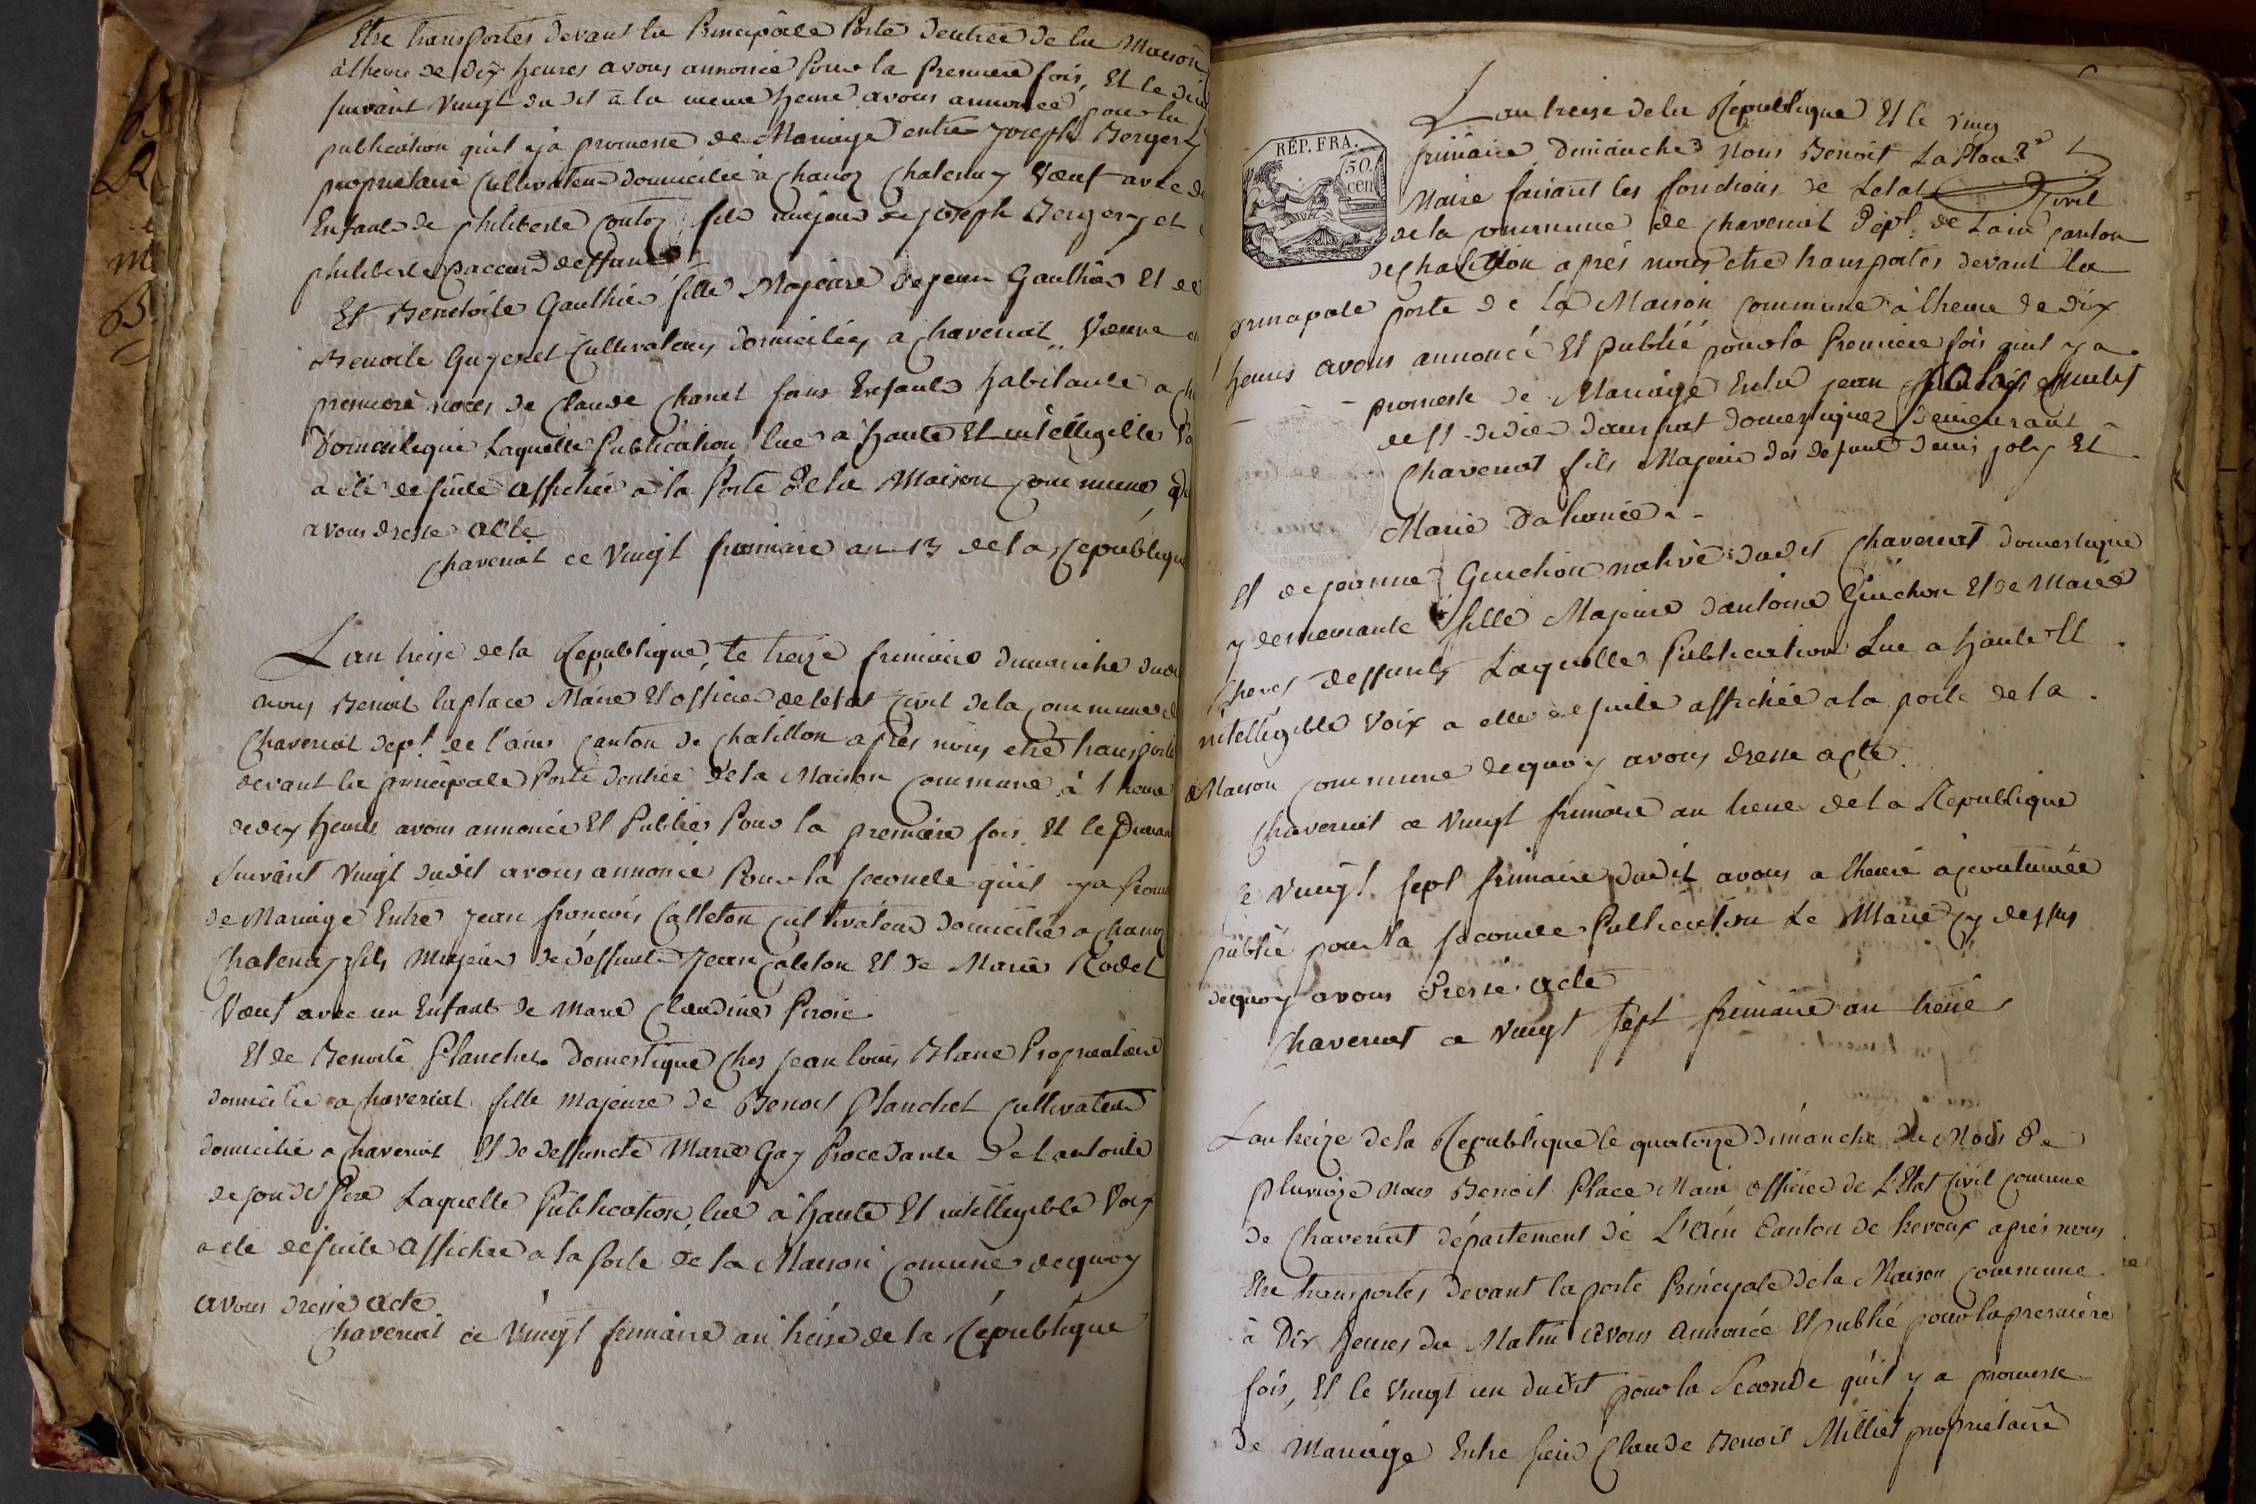 Etre transportés devant la Principale Porte dentrée de la Maison
à lheure de dix heures avons annoncé Pour la Premiere fois, Et le
suivant Vingt dudit a la meme heure avons annoncé pour la
publication quil ya promesse de Mariage entre joseph Bergery
proprietaire Cultivateur domicilié à Chanoz Chatenay Vœuf avec
Enfants de philiberte fils majeur de joseph Bergery et
philiberte paccard deffunts
Et Benoite Gauthier fille Majeure de jean Gauthier Et de
Benoite Guyenet Cultivateurs domiciliés a Chaveriat Vœuve en
premiere noces de Claude Chanet sans Enfants habitante a
Domestique Laquelle Publication lue a haute Et intelligible
a été desuite affichée à la Porte Dela Maison Commune
avons dressé acte
Chaveriat ce Vingt frimaire an 13 dela Republique
L an treise dela Republique, le treize frimaire dimanche
nous Benoit laplace Maire Et officier deletat Civil dela Commune
Chaveriat dept. de l'ain Canton de Chatillon après nous etre transporté
devant la principale Porte dentrée dela Maison Commune à l heure
dedix heures avons annoncé Et Publié Pour la premiere fois. Et le
suivant Vingt dudit avons annoncé Pour la seconde qu'il ya
de Mariage Entre Jean francois Calleton Cultivateur domicilié a
Chatenay fils Majeur de deffunt Jean Caleton Et de Marie Rodet
Vœuf avec un Enfant de Marie Claudine
Et de Benoite Planchet Domestique Chés jean louis Blanc Proprietaire
domicilié a Chaveriat fille majeure de Benoit Planchet Cultivateur
domicilié a Chaveriat Et de deffuncte Marie Gay Procedante De Lautorité
de son dt Pere Laquelle Publication lue à haute Et intelligible Voix
a été desuite Affichée a la Porte de la Maison Comune dequoy
avons dressé acte
Chaveriat ce Vingt frimaire an treise de la République
RÉP. FRA.
50.
cen
L an treise dela Republique Et le Ving
frimaire Dimanche Nous Benoit La Place
Maire faisant les fonctions de Letat Civil
dela commune de Chaveriat Dept. de Lain Canton
de Chatillon après nous etre transportés devant la
principale porte de la Maison Commune à lheure de dix
heures avons annoncé Et publié pour la Premiere fois quil ya
promesse de Mariage Entre jean
de St didier domestique demeurant
Chaveriat fils Majeur des defunt denis joly Et
Marie
Et de jeanne Guichon native dudit Chaveriat domestique
y demeurante fille Majeure dantoine Guichon Et de Marie
deffunts Laquelle Publication Lue a haute Et
intelligible Voix a elle desuite affichée a la porte de la
Maison commune dequoy avons dressé acte.
Chaveriat ce Vingt frimaire an treise dela Republique
Le Vingt sept frimaire dudit avons a lheure acoutumée
publié pour la seconde Publication Le Marie Cy dessus
dequoy avons Dressé acte
Chaveriat ce vingt sept frimaire an treise
L an treize dela Republique le quatorze dimanche du Mois De
pluviôze Nous Benoit Place Maire officier de L'Etat Civil Comune
de Chaveriat département de L'ain Canton de trevoux après nous
Etre transportés devant la porte Principale dela Maison Commune
à Dix heures du Matin avons annoncé Et publié pour la première
fois, Et le vingt un dudit pour la Seconde qu'il y a promesse
de Mariage Entre sieur Claude Benoit Milliet proprietaire